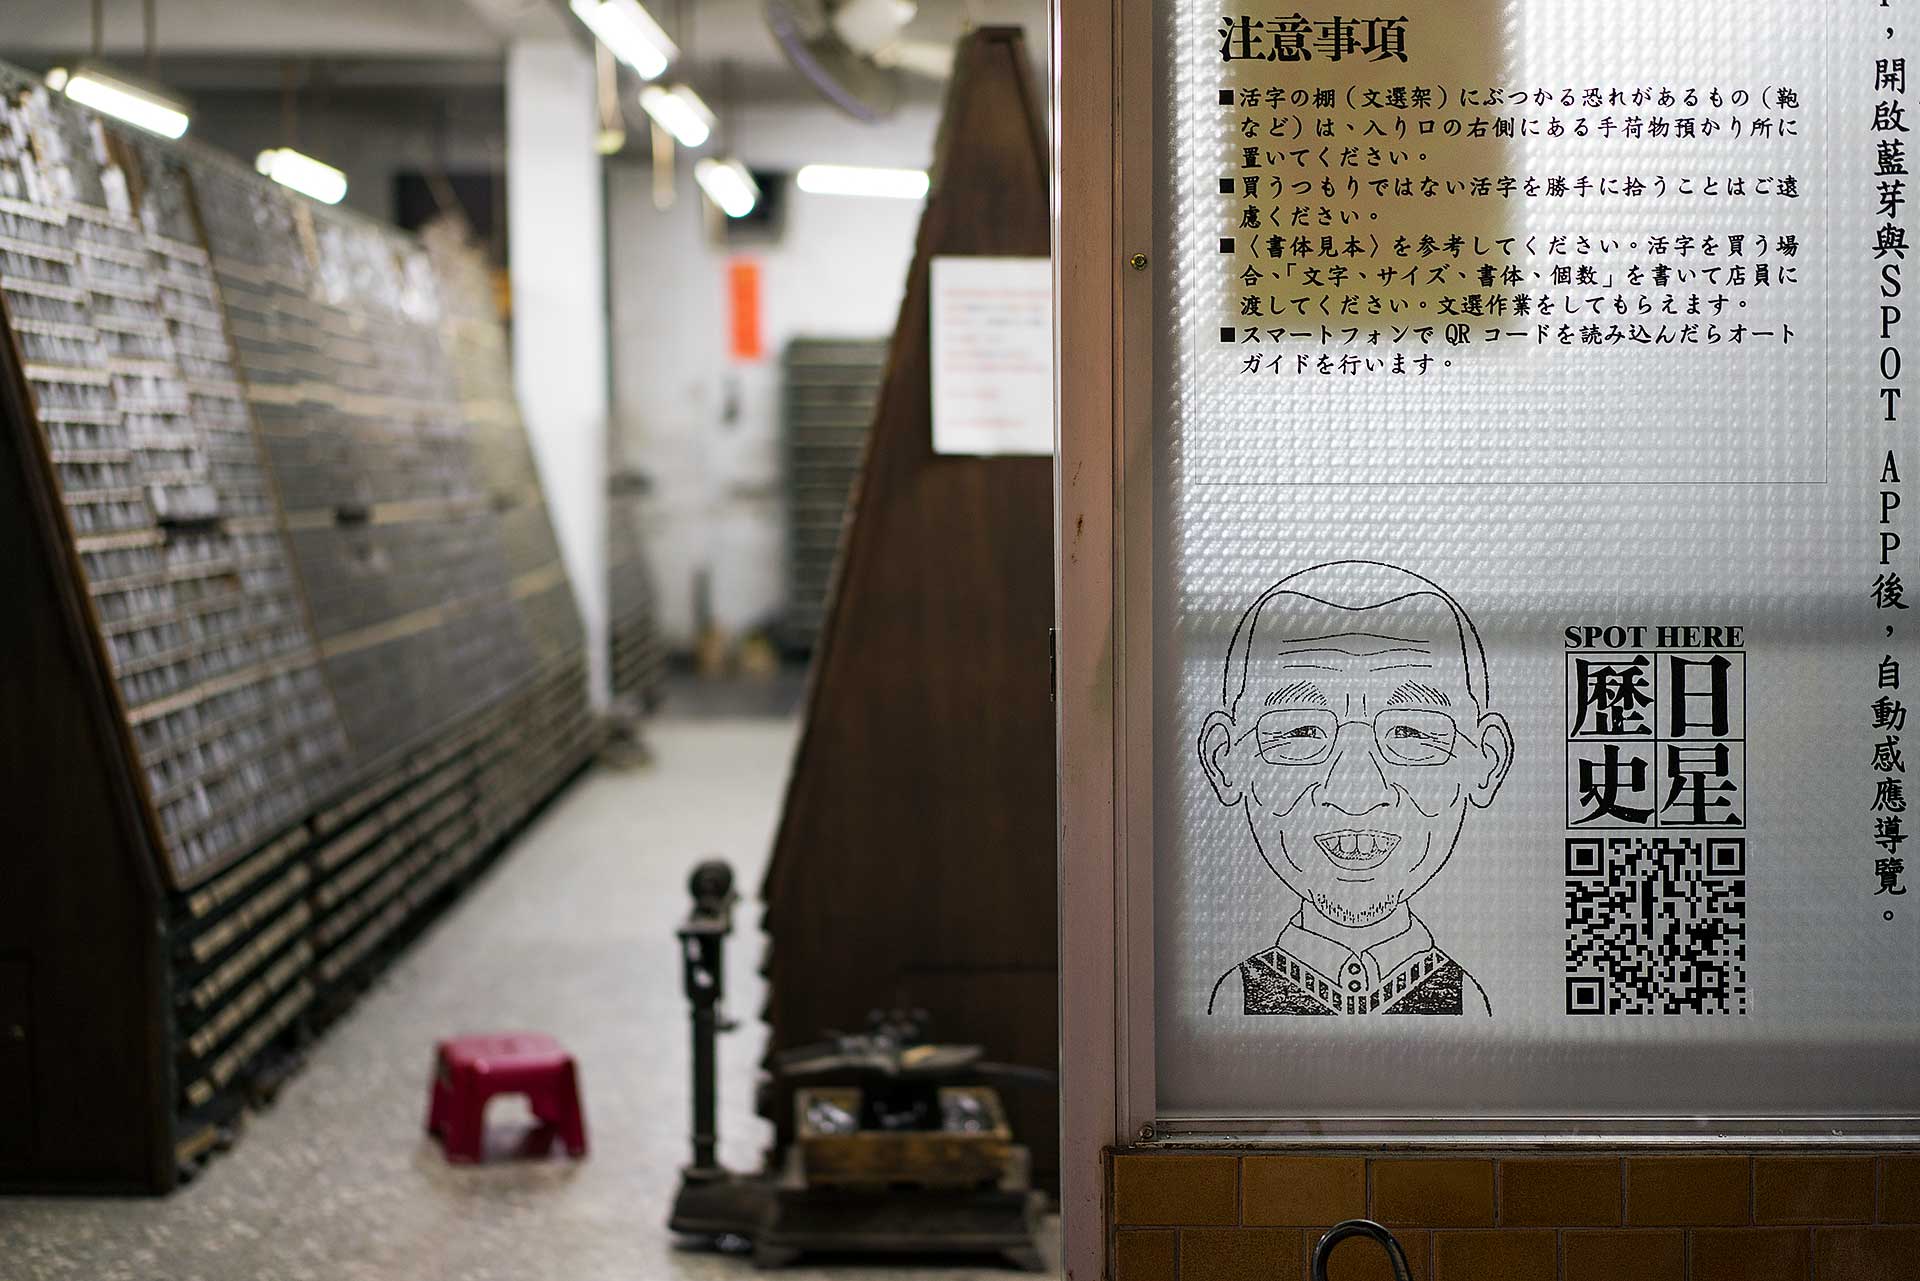 注意事項
■活字の棚（文選架）にぶつかる恐れがあるもの（鞄
など）は、入り口の右側にある手荷物預かり所に
置いてください。
■買うつもりではない活字を勝手に拾うことはご遠
慮ください。
■〈書体見本〉を参考してください。活字を買う場
合、「文字、サイズ、書体、個数」を書いて店員に
渡してください。文選作業をしてもらえます。
■スマートフォンで QR コードを読み込んだらオート
ガイドを行います。
，開啟藍芽與SPOT APP後，自動感應導覽。
SPOT HERE
日星
歷史